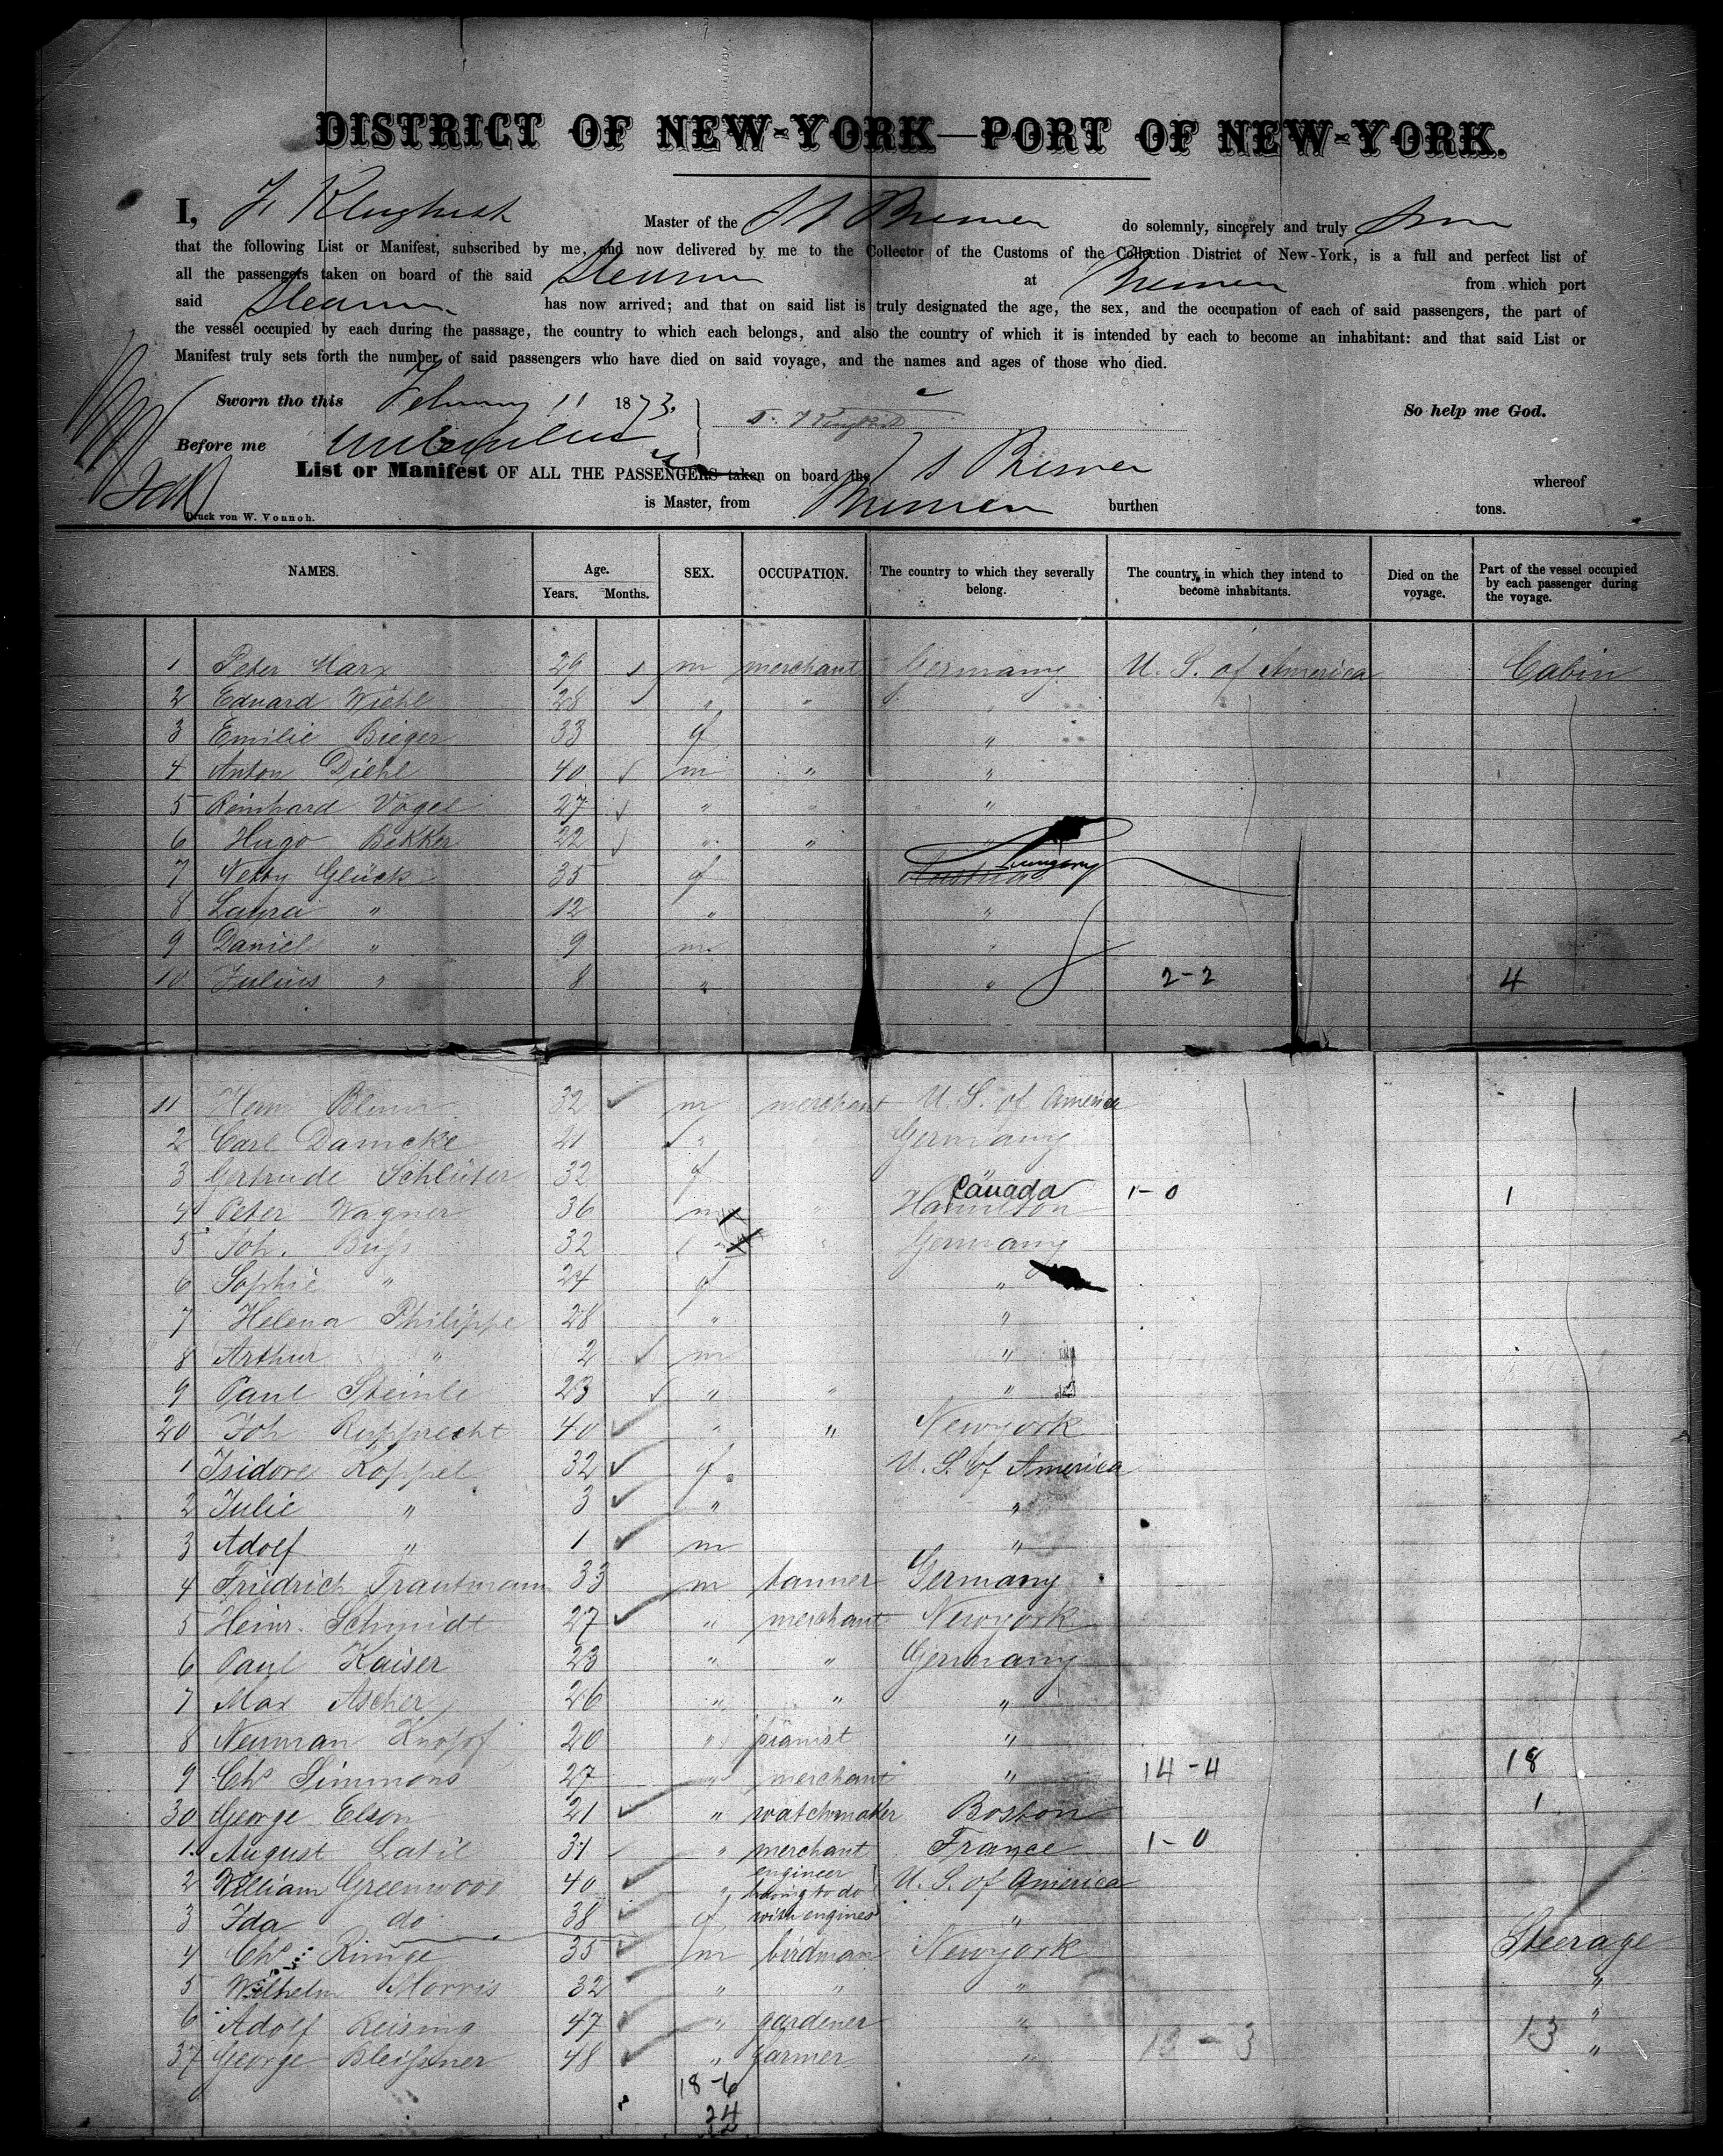 DISTRICT OF NEW-YORK—PORT OF NEW-YORK.
I, F. Klugkist Master of the SS Bremen do solemnly, sincerely and truly
that the following List or Manifest, subscribed by me, and now delivered by me to the Collector of the Customs of the Collection District of New-York, is a full and perfect list of
all the passengers taken on board of the said Steamer at Bremen from which port
said Steamer has now arrived; and that on said list is truly designated the age, the sex, and the occupation of each of said passengers, the part of
the vessel occupied by each during the passage, the country to which each belongs, and also the country of which it is intended by each to become an inhabitant: and that said List or
Manifest truly sets forth the number of said passengers who have died on said voyage, and the names and ages of those who died.
Sworn tho this February 11 1873. So help me God.
Before me
List or Manifest OF ALL THE PASSENGERS taken on board the SS Bremen whereof
is Master, from Bremen burthen tons.
Druck von W. Vonnoh.
NAMES. Age. Years. Months. SEX. OCCUPATION. The country to which they severally belong. The country in which they intend to become inhabitants. Died on the voyage. Part of the vessel occupied by each passenger during the voyage.
1 Peter Marx 29 m merchant Germany U. S. of America Cabin
2 Eduard Wiehl 28 " "
3 Emilie Bieger 33 f "
4 Anton Diehl 40 m " "
5 Reinhard Vogel 27 " " "
6 Hugo Bekker 22 " " "
7 Netty Glück 35 f Austria Hungary
8 Laura " 12 " "
9 Daniel " 9 m "
10 Julius " 8 " " 2-2 4
11 Herm Blum 32 m merchant U. S. of America
2 Carl Damcke 21 " Germany
3 Gertrude Schlüter 32 f
4 Peter Wagner 36 m " Hamilton Canada 1-0 1
5 Joh. Buß 32 " " Germany
6 Sophie " 24 f "
7 Helena Philippe 28 " "
8 Arthur " 2 m "
9 Paul Steinle 23 " " "
20 Joh Rupprecht 40 " " Newyork
1 Isidore Koppel 32 f U. S. of America
2 Julie " 3 " "
3 Adolf " 1 m "
4 Friedrich Trautmann 33 m tanner Germany
5 Heinr. Schmidt 27 " merchant Newyork
6 Paul Kaiser 23 " " Germany
7 Max Ascher 26 " " "
8 Neuman Knopof 20 " pianist "
9 Chs Simmons 27 " merchant " 14-4 18
30 George Elson 21 " watchmaker Boston 1
1 August Latil 31 " merchant France 1-0
2 William Greenwood 40 " engineer having to do U. S. of America
3 Ida do 38 f with engines "
4 Chs Rinige 35 m birdman Newyork Steerage
5 Wilhelm Morris 32 " " " "
6 Adolf Reising 47 " gardener " "
37 George Bleißner 48 " farmer " 10-3 13 "
18-6
24